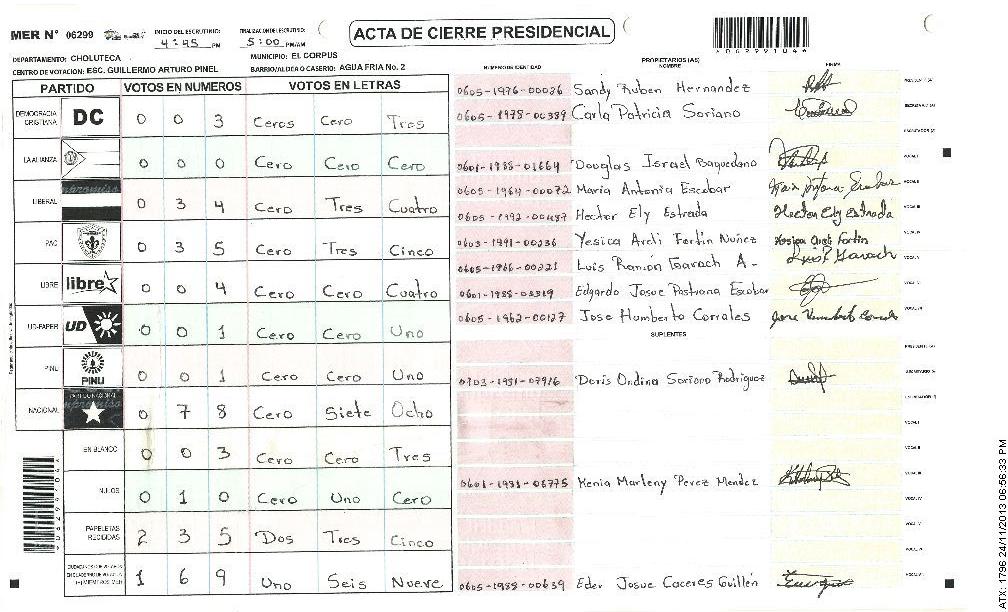 MER N° 06299 INICIO DEL ESCRUTINIO: 4:45 PM FINALIZACION DE ESCRUTINIO: 5:00 PM/AM
ACTA DE CIERRE PRESIDENCIAL
DEPARTAMENTO: CHOLUTECA MUNICIPIO: EL CORPUS
CENTRO DE VOTACION: ESC. GUILLERMO ARTURO PINEL BARRIO/ALDEA O CASERIO: AGUA FRIA No. 2
PARTIDO VOTOS EN NUMEROS VOTOS EN LETRAS
DEMOCRACIA CRISTIANA DC 0 0 3 Ceros Cero Tres
LA ALIANZA 0 0 0 Cero Cero Cero
LIBERAL 0 3 4 Cero Tres Cuatro
PAC 0 3 5 Cero Tres Cinco
LIBRE libre 0 0 4 Cero Cero Cuatro
UD-FAPER UD 0 0 1 Cero Cero Uno
PINU PINU 0 0 1 Cero Cero Uno
NACIONAL 0 7 8 Cero Siete Ocho
EN BLANCO 0 0 3 Cero Cero Tres
NULOS 0 1 0 Cero Uno Cero
PAPELETAS RECIBIDAS 2 3 5 Dos Tres Cinco
1 6 9 Uno Seis Nueve
NUMERO DE IDENTIDAD PROPIETARIOS (AS) NOMBRE FIRMA
0605-1976-00036 Sandy Ruben Hernandez
0605-1978-00389 Carla Patricia Soriano
0601-1988-01664 Douglas Israel Baquedano
0605-1964-00072 Maria Antonia Escobar
0605-1992-00487 Hector Ely Estrada Hector Ely Estrada
0603-1991-00236 Yesica Areli Fortin Nuñez
0605-1966-00221 Luis Ramón Garach A-
Edgardo Josue Pastrana Escobar
0605-1962-00127 Jose Humberto Corrales
SUPLENTES
0703-1981-07916 Doris Ondina Soriano Rodriguez
0601-1981-06775 Kenia Marleny Perez Mendez
0605-1988-00639 Eder Josue Caceres Guillén
ATX: 1796 24/11/2013 06:56:33 PM